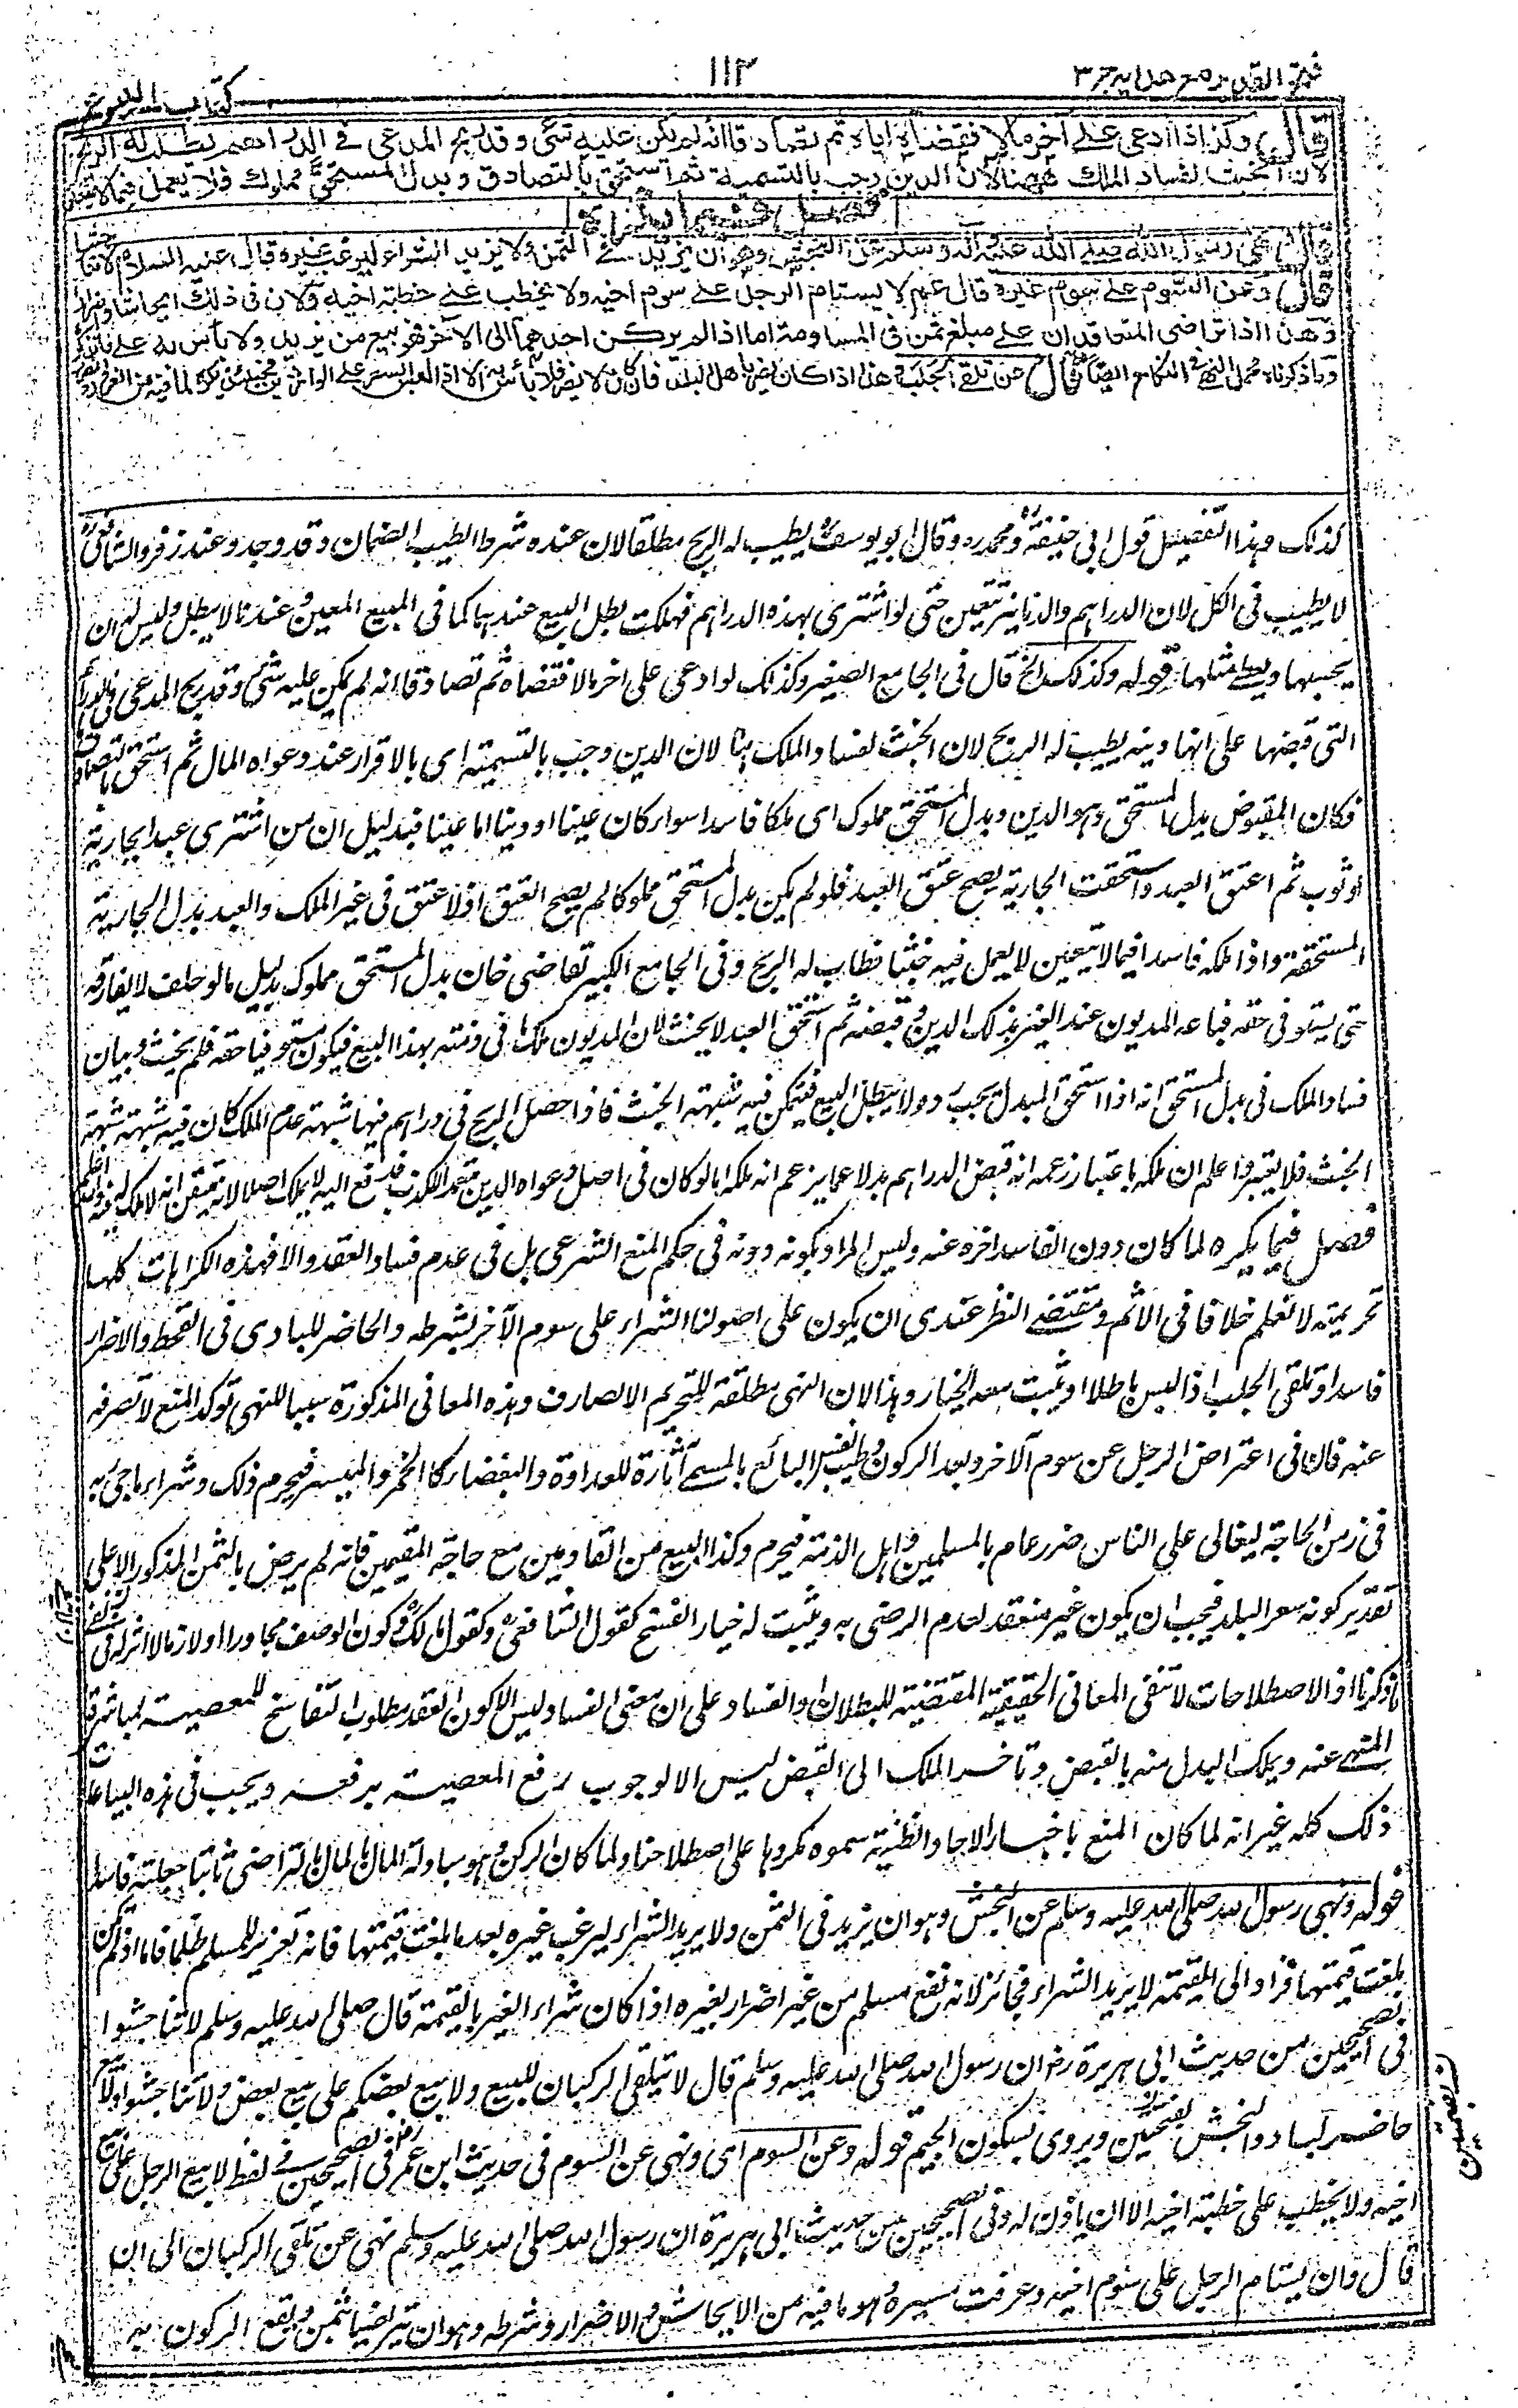 فتح القدير مع هدايه ج ٣
١١٢
كتاب البيوع
قال وكذا اذا ادعى على آخر مالا فقضاه اياه ثم تصادقا انه لم يكن عليه شئ وقد ربح المدعى فى الدراهم يطيب له الربح
لان الخبث لفساد الملك ههنا لان الدين وجب بالتسمية ثم استحق بالتصادق وبدل المستحق مملوك فلا يعمل فيما لا يتعين
فصل فيما يكره
قال نهى رسول الله صلى الله عليه وآله وسلم عن النجش وهو ان يزيد فى الثمن ولا يريد الشراء ليرغب غيره قال عليه السلام لا تناجشوا
قال وعن السوم على سوم غيره قال عم لا يستام الرجل على سوم اخيه ولا يخطب على خطبة اخيه ولان فى ذلك ايحاشا واضرارا
وهذا اذا تراضى المتعاقدان على مبلغ ثمن فى المساومة اما اذا لم يركن احدهما الى الآخر فهو بيع من يزيد ولا بأس به على ما نذكره
وما ذكرناه محمل النهى فى النكاح ايضا قال وعن تلقى الجلب وهذا اذا كان يضر باهل البلد فان كان لا يضر فلا بأس به الا اذا لبس السعر على الواردين فحينئذ يكره لما فيه من الغرر والضرر
كذلك وهذا التفصيل قول ابى حنيفة ومحمد ره وقال ابو يوسف يطيب له الربح مطلقا لان عنده شرط الطيب الضمان وقد وجد وعند زفر والشافعى
لا يطيب فى الكل لان الدراهم والدنانير تتعين حتى لو اشترى بهذه الدراهم فهلكت بطل البيع عندهما كما فى المبيع المعين وعندنا لا يبطل وليس له ان
يحبسها ويعطى مثلها قوله وكذلك الخ قال فى الجامع الصغير وكذلك لو ادعى على اخر مالا فقضاه ثم تصادقا انه لم يكن عليه شئ وقد ربح المدعى فى الدراهم
التى قبضها على انها دينه يطيب له الربح لان الخبث لفساد الملك هنا لان الدين وجب بالتسمية اى بالاقرار عند دعواه المال ثم استحق بالتصادق
فكان المقبوض بدل المستحق وهو الدين وبدل المستحق مملوك اى ملكا فاسدا سواء كان عينا او دينا اما عينا فبدليل ان من اشترى عبدا بجارية
او ثوب ثم اعتق العبد واستحقت الجارية يصح عتق العبد فلو لم يكن بدل المستحق مملوكا لم يصح العتق اذ لا عتق فى غير الملك والعبد بدل الجارية
المستحقة واذا ملكه فاسدا فيما لا يتعين لا يعمل فيه خبثا فطاب له الربح وفى الجامع الكبير لقاضى خان بدل المستحق مملوك بدليل ما لو حلف لا يفارقه
حتى يستوفى حقه فباعه المديون عبد الغير بذلك الدين وقبضه ثم استحق العبد لا يحنث لان المديون ملك ما فى ذمته بهذا البيع فيكون مستوفيا حقه فلم يحنث وبيان
فساد الملك فى بدل المستحق انه اذا استحق المبدل يجب رده ولا يبطل البيع فيتمكن فيه شبهة الخبث فاذا حصل الربح فى دراهم فيها شبهة عدم الملك كان فيه شبهة شبهة
الخبث فلا يعتبر واعلم ان ملكه باعتبار زعمه انه قبض الدراهم بدلا عما يزعم انه ملكه اما لو كان فى اصل دعواه الدين متعمد الكذب فدفع اليه لا يملكه اصلا لانه متيقن انه لا ملك له فيه والله اعلم
فصل فيما يكره لما كان دون الفاسد اخره عنه وليس المراد بكونه دونه فى حكم المنع الشرعى بل فى عدم فساد العقد والا فهذه الكراهات كلها
تحريمية لا نعلم خلافا فى الاثم ومقتضى النظر عندى ان يكون على اصولنا الشراء على سوم الآخر بشرطه والحاضر للبادى فى القحط والاضرار
فاسدا وتلقى الجلب اذا لبس باطلا او يثبت معه الخيار وهذا لان النهى مطلقة للتحريم الا لصارف وهذه المعانى المذكورة سببا للنهى توكد المنع لا تصرفه
عنه فان فى اعتراض الرجل عن سوم الآخر وبعد الركون وطيب نفس البائع بالمسمى آثارة للعداوة والبغضاء كالخمر والميسر فيحرم ذلك وشراء ما جئ به
فى زمن الحاجة ليغالى على الناس ضرر عام بالمسلمين واهل الذمة فيحرم وكذا البيع من القادمين مع حاجة المقيمين فانه لم يرض بالثمن المذكور الا على
تقدير كونه سعر البلد فيجب ان يكون غير منعقد لعدم الرضى به ويثبت له خيار الفسخ كقول الشافعى وكقول مالك وكون الوصف مجاورا او لازما لا اثر له فى
ما ذكرنا اذ الاصطلاحات لا تنفى المعانى الحقيقية المقتضية للبطلان والفساد على ان معنى الفساد ليس الا كون العقد مطلوب التفاسخ للمعصية لمباشرة
المنهى عنه ويملك البدل منه بالقبض وتاخر الملك الى القبض ليس الا لوجوب رفع المعصية برفعه ويجب فى هذه البياعات
ذلك كله غير انه لما كان المنع باخبار الاحاد الظنية سموه مكروها على اصطلاحنا ولما كان الركن وهو مبادلة المال بالمال بالتراضى ثابتا جعلته فاسدا
قوله ونهى رسول الله صلى الله عليه وسلم عن النجش وهو ان يزيد فى الثمن ولا يريد الشراء ليرغب غيره بعد ما بلغت قيمتها فانه تغرير للمسلم ظلما فاما اذا لم تكن
بلغت قيمتها فزاد الى القيمة لا يريد الشراء فجائز لانه نفع مسلم من غير اضرار بغيره اذا كان شراء الغير بالقيمة قال صلى الله عليه وسلم لا تناجشوا
فى الصحيحين من حديث ابى هريرة رض ان رسول الله صلى الله عليه وسلم قال لا يتلقى الركبان للبيع ولا يبع بعضكم على بيع بعض ولا تناجشوا ولا يبع
حاضر لباد والنجش بفتحتين ويروى بسكون الجيم قوله وعن السوم اى ونهى عن السوم فى حديث ابن عمر رض فى الصحيحين فى لفظ لا يبع الرجل على بيع
اخيه ولا يخطب على خطبة اخيه الا ان ياذن له وفى الصحيحين من حديث ابى هريرة ان رسول الله صلى الله عليه وسلم نهى عن تلقى الركبان الى ان
قال وان يستام الرجل على سوم اخيه وعرفت تفسيره وهو ما فيه من الايحاش والاضرار وشرطه وهو ان يتراضيا بثمن ويقع الركون به